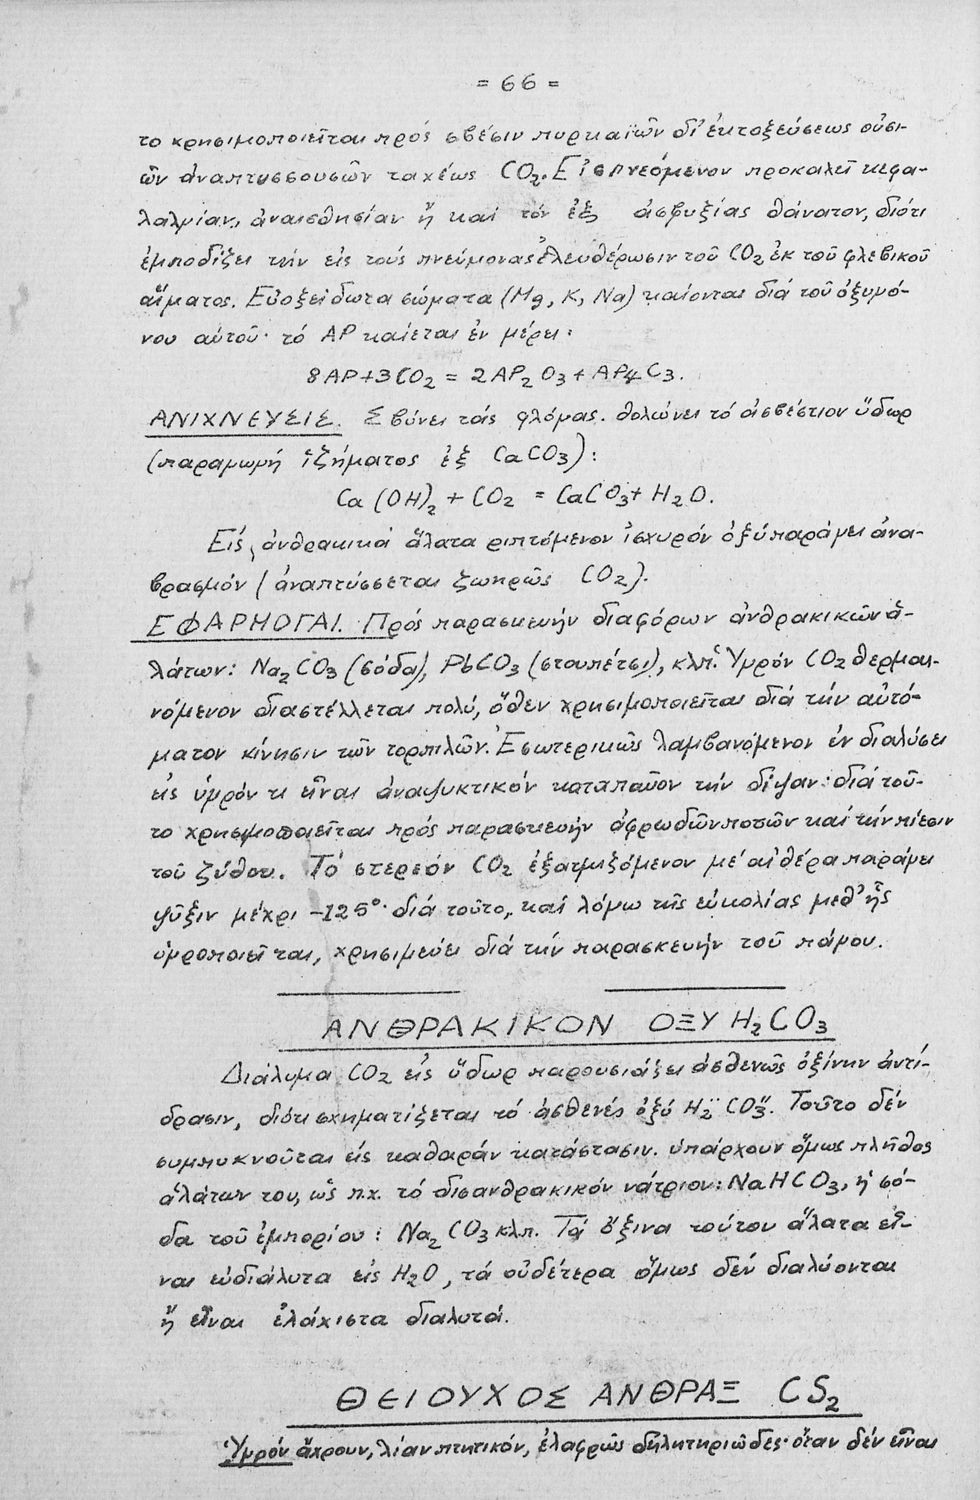 = 66 =
το χρησιμοποιεῖται πρός σβέσιν πυρκαϊῶν δι' ἐκτοξεύσεως οὐσι-
ῶν ἀναπτυσσουσῶν ταχέως CO2. Εἰσπνεόμενον προκαλεῖ κεφα-
λαλγίαν, ἀναισθησίαν ἤ καί τόν ἐξ ἀσφυξίας θάνατον, διότι
ἐμποδίζει τήν εἰς τούς πνεύμονας ἐλευθέρωσιν τοῦ CO2 ἐκ τοῦ φλεβικοῦ
αἵματος. Εὐοξείδωτα σώματα (Mg, K, Na) καίονται διά τοῦ ὀξυγό-
νου αὐτοῦ· τό Αl καίεται ἐν μέρει:
8Al+3CO2 = 2Al2O3 + Al4C3.
ΑΝΙΧΝΕΥΣΙΣ. Σβύνει τάς φλόγας. θολώνει τό ἀσβέστιον ὕδωρ
(παραγωγή ἱζήματος ἐξ CaCO3):
Ca(OH)2 + CO2 = CaCO3 + H2O.
Εἰς ἀνθρακικά ἅλατα ριπτόμενον ἰσχυρόν ὀξύ παράγει ἀνα-
βρασμόν (ἀναπτύσσεται ζωηρῶς CO2).
ΕΦΑΡΜΟΓΑΙ. Πρός παρασκευήν διαφόρων ἀνθρακικῶν ἁ-
λάτων: Na2CO3 (σόδα), PbCO3 (στουπέτσι), κλπ. Ὑγρόν CO2 θερμαι-
νόμενον διαστέλλεται πολύ, ὅθεν χρησιμοποιεῖται διά τήν αὐτό-
ματον κίνησιν τῶν τορπιλῶν. Ἐσωτερικῶς λαμβανόμενον ἐν διαλύσει
εἰς ὑγρόν τι εἶναι ἀναψυκτικόν καταπαῦον τήν δίψαν: διά τοῦ-
το χρησιμοποιεῖται πρός παρασκευήν ἀφρωδῶν ποτῶν καί τήν πίεσιν
τοῦ ζύθου. Τό στερεόν CO2 ἐξατμιζόμενον μέ αἰθέρα παράγει
ψῦξιν μέχρι -125° διά τοῦτο, καί λόγω τῆς εὐκολίας μεθ' ἧς
ὑγροποιεῖται, χρησιμεύει διά τήν παρασκευήν τοῦ πάγου.
ΑΝΘΡΑΚΙΚΟΝ ΟΞΥ H2CO3
Διάλυμα CO2 εἰς ὕδωρ παρουσιάζει ἀσθενῶς ὀξίνην ἀντί-
δρασιν, διότι σχηματίζεται τό ἀσθενές ὀξύ H2CO3. Τοῦτο δέν
συμπυκνοῦται εἰς καθαράν κατάστασιν. ὑπάρχουν ὅμως πλῆθος
ἁλάτων του, ὡς π.χ. τό δισανθρακικόν νάτριον: NaHCO3, ἡ σό-
δα τοῦ ἐμπορίου: Na2CO3 κλπ. Τά ὄξινα τούτου ἅλατα εἶ-
ναι εὐδιάλυτα εἰς H2O, τά οὐδέτερα ὅμως δέν διαλύονται
ἤ εἶναι ἐλάχιστα διαλυτά.
ΘΕΙΟΥΧΟΣ ΑΝΘΡΑΞ CS2
Ὑγρόν ἄχρουν, λίαν πτητικόν, ἐλαφρῶς δηλητηριῶδες· ὅταν δέν εἶναι